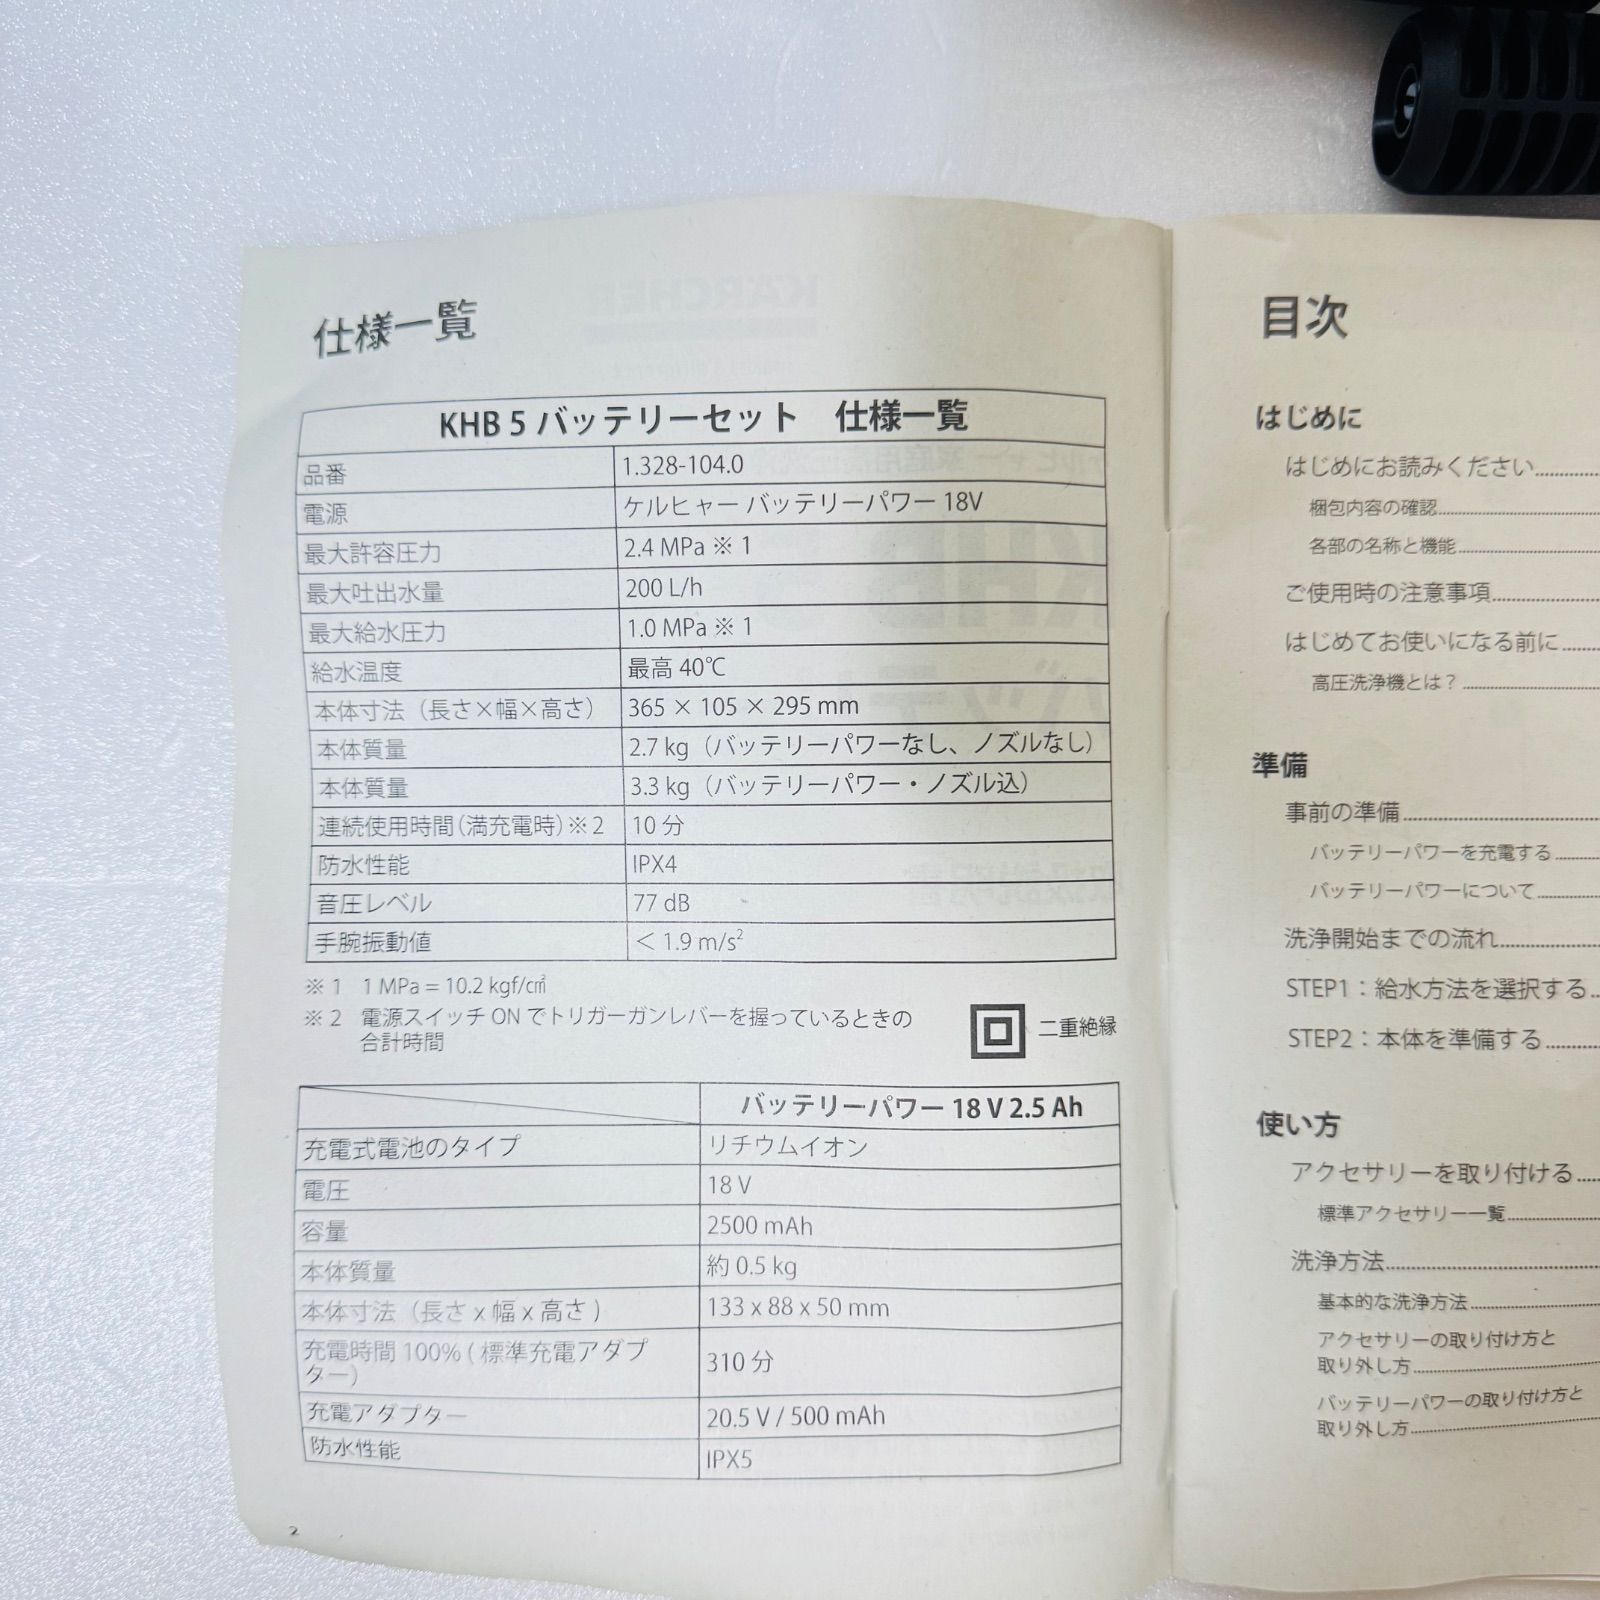 仕様一覧
KHB 5 バッテリーセット　仕様一覧
品番 1.328-104.0
電源 ケルヒャー バッテリーパワー 18V
最大許容圧力 2.4 MPa ※ 1
最大吐出水量 200 L/h
最大給水圧力 1.0 MPa ※ 1
給水温度 最高 40℃
本体寸法（長さ×幅×高さ） 365 × 105 × 295 mm
本体質量 2.7 kg（バッテリーパワーなし、ノズルなし）
本体質量 3.3 kg（バッテリーパワー・ノズル込）
連続使用時間（満充電時）※ 2 10 分
防水性能 IPX4
音圧レベル 77 dB
手腕振動値 ＜ 1.9 m/s²
※ 1 1 MPa = 10.2 kgf/㎠
※ 2 電源スイッチ ON でトリガーガンレバーを握っているときの
合計時間
二重絶縁
バッテリーパワー 18 V 2.5 Ah
充電式電池のタイプ リチウムイオン
電圧 18 V
容量 2500 mAh
本体質量 約 0.5 kg
本体寸法（長さ x 幅 x 高さ ) 133 x 88 x 50 mm
充電時間 100% ( 標準充電アダプ
ター） 310 分
充電アダプター 20.5 V / 500 mAh
防水性能 IPX5
2
目次
はじめに
はじめにお読みください
梱包内容の確認
各部の名称と機能
ご使用時の注意事項
はじめてお使いになる前に
高圧洗浄機とは？
準備
事前の準備
バッテリーパワーを充電する
バッテリーパワーについて
洗浄開始までの流れ
STEP1：給水方法を選択する
STEP2：本体を準備する
使い方
アクセサリーを取り付ける
標準アクセサリー一覧
洗浄方法
基本的な洗浄方法
アクセサリーの取り付け方と
取り外し方
バッテリーパワーの取り付け方と
取り外し方